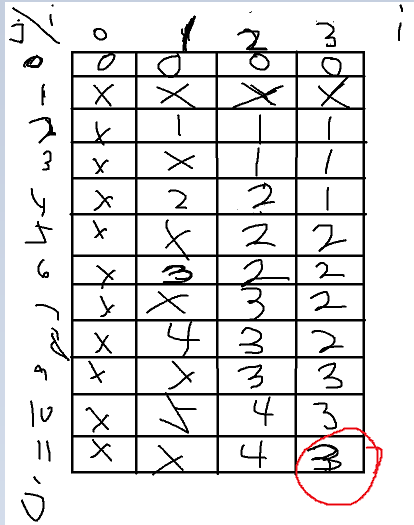 j/i 0 1 2 3 i
0 0 0 0 0
1 x x x x
2 x 1 1 1
3 x x 1 1
4 x 2 2 1
5 x x 2 2
6 x 3 2 2
7 x x 3 2
8 x 4 3 2
9 x x 3 3
10 x 5 4 3
11 x x 4 3
j